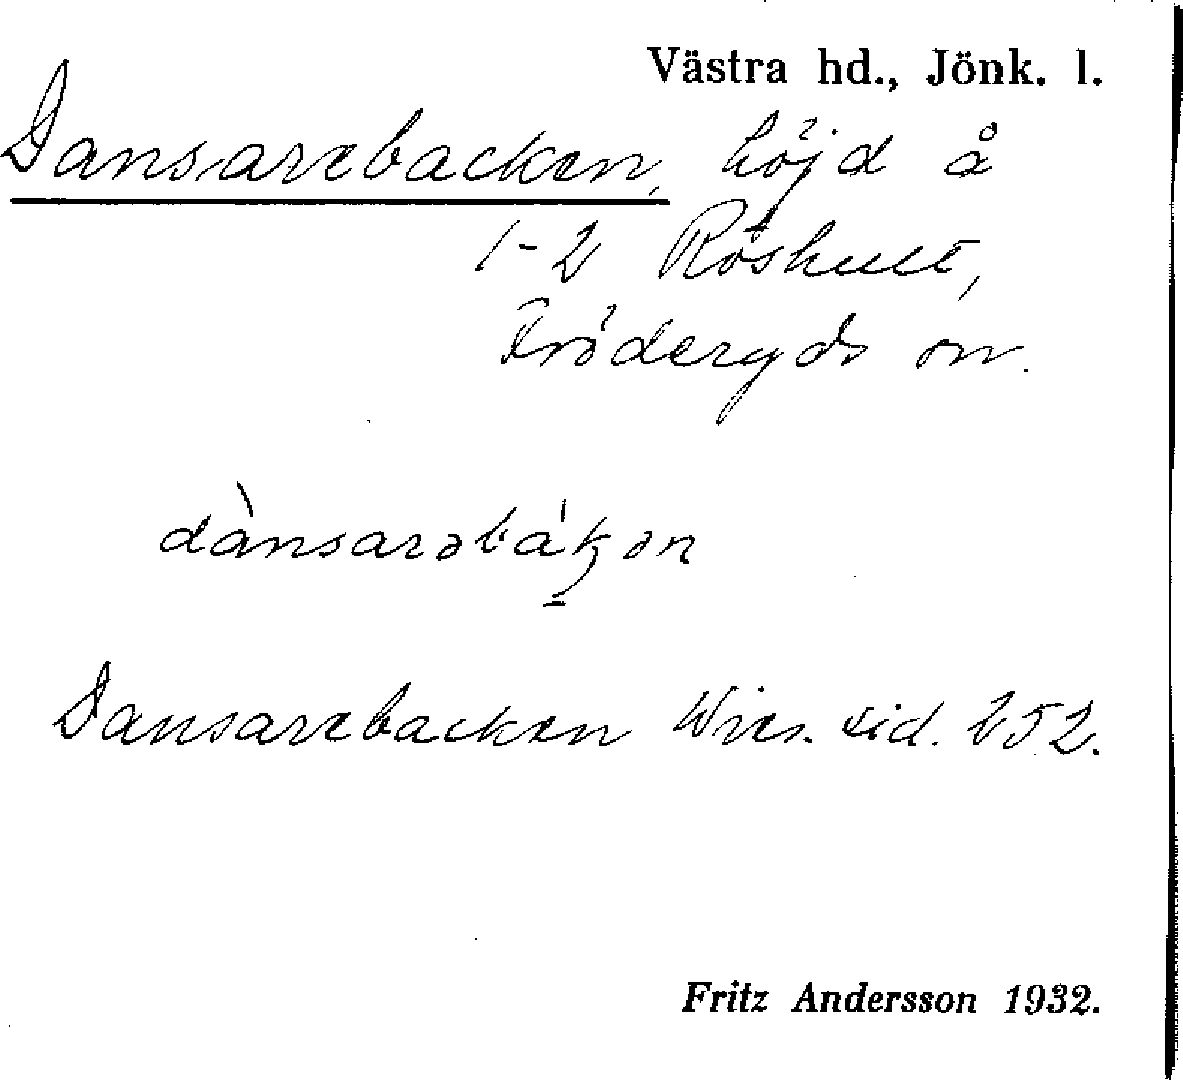 Västra hd., Jönk. l.
Dansarebacken, höjd å
1-2 Röshult,
Fröderyds sn.
dànsarəbàkən
Dansarebacken Wies. sid. 252.
Fritz Andersson 1932.